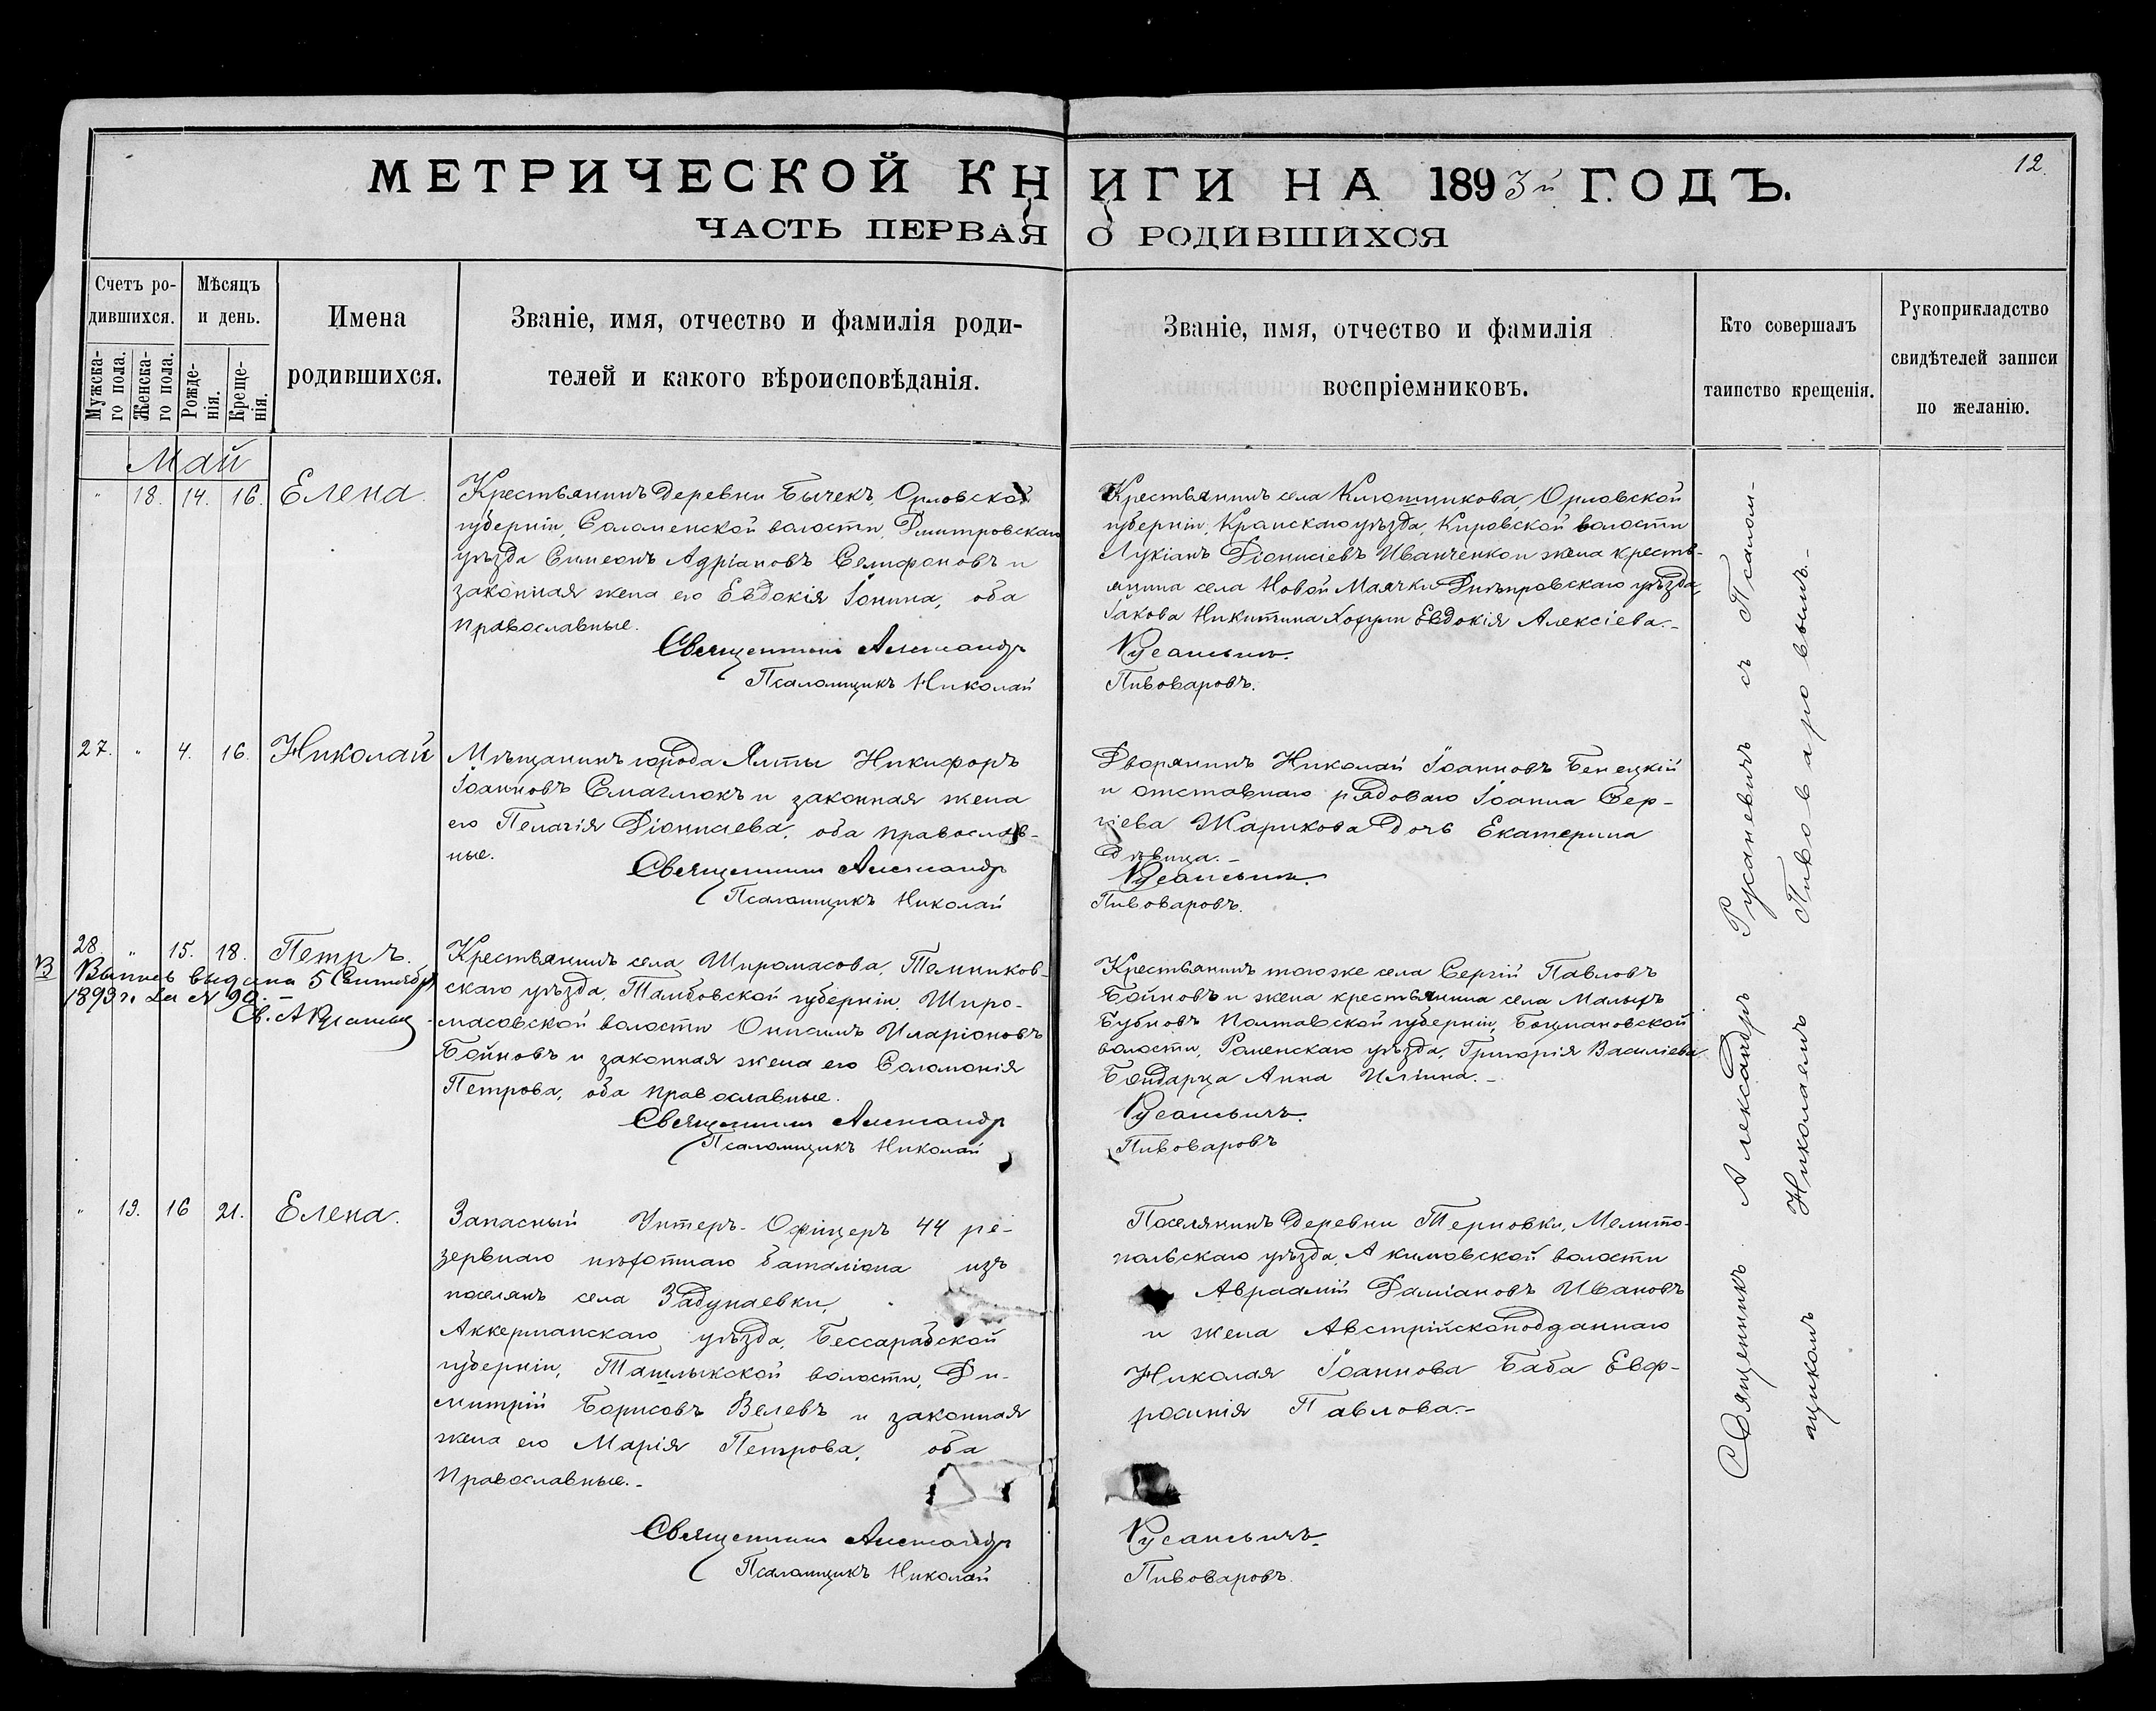 МЕТРИЧЕСКОЙ КНИГИ НА 1893й ГОДЪ.
12.
ЧАСТЬ ПЕРВАЯ О РОДИВШИХСЯ
Счетъ ро-
дившихся.
Мужска-
го пола.
Женска-
го пола.
Мѣсяцъ
и день.
Рожде-
нія.
Креще-
нія.
Имена
родившихся.
Званіе, имя, отчество и фамилія роди-
телей и какого вѣроисповѣданія.
Званіе, имя, отчество и фамилія
воспріемниковъ.
Кто совершалъ
таинство крещенія.
Рукоприкладство
свидѣтелей записи
по желанію.
Май
" 18. 14. 16. Елена.
Крестьянинъ деревни Бычекъ, Орловской
губерніи, Соломенской волости, Дмитровскаго
уѣзда Симеонъ Адріановъ Селифоновъ и
законная жена его Евдокія Іонина, оба
православные.
Священникъ Александръ
Псаломщикъ Николай
Крестьянинъ села Орловской
губерніи, уѣзда, волости
Лукіанъ Діонисіевъ Иванченко и жена кресть-
янина села Новой Маячки Днѣпровскаго уѣзда,
Іакова Никитина Евдокія Алексіева.-
Русаневичъ.
Пивоваровъ.
27. " 4. 16. Николай
Мѣщанинъ города Ялты Никифоръ
Іоанновъ Смаглюкъ и законная жена
его Пелагія Діонисіева, оба православ-
ные.
Священникъ Александръ
Псаломщикъ Николай
Дворянинъ Николай Іоанновъ Бенецкій
и отставнаго рядоваго Іоанна Сер-
гіева Жарикова дочь Екатерина
дѣвица.-
Русаневичъ.
Пивоваровъ.
28. " 15. 18. Петръ.
В Выпись выдана 5 Сентября
1893 г. за № 90.-
Св. А Русаневич
Крестьянинъ села Широмасова, Темников-
скаго уѣзда, Тамбовской губерніи, Широ-
масовской волости Онисимъ Иларіоновъ
Бойновъ и законная жена его Соломонія
Петрова, оба православные.
Священникъ Александръ
Псаломщикъ Николай
Крестьянинъ тогоже села Сергій Павловъ
Бойновъ и жена крестьянина села Малыхъ
Бубновъ Полтавской губерніи,
волости, Роменскаго уѣзда, Григорія Василіева
Бондарца Анна Иліина.-
Русаневичъ.
Пивоваровъ
" 19. 16 21. Елена.
Запасный Унтеръ-Офицеръ 44 ре-
зервнаго пѣхотнаго баталіона изъ
поселянъ села Задунаевки,
Аккерманскаго уѣзда, Бессарабской
губерніи, Ташлыкской волости, Ди-
митрій Борисовъ Велевъ и законная
жена его Марія Петрова, оба
православные.-
Священникъ Александръ
Псаломщикъ Николай
Поселянинъ деревни Терновки, Мелито-
польскаго уѣзда, Акимовской волости
Авраамій Даміановъ Ивановъ
и жена Австрійскоподданнаго
Николая Іоаннова Баба Евф-
росинія Павлова.-
Русаневичъ.
Пивоваровъ.
Священникъ Александръ Русаневичъ съ Псалом-
щикомъ Николаемъ Пивоваровымъ.-